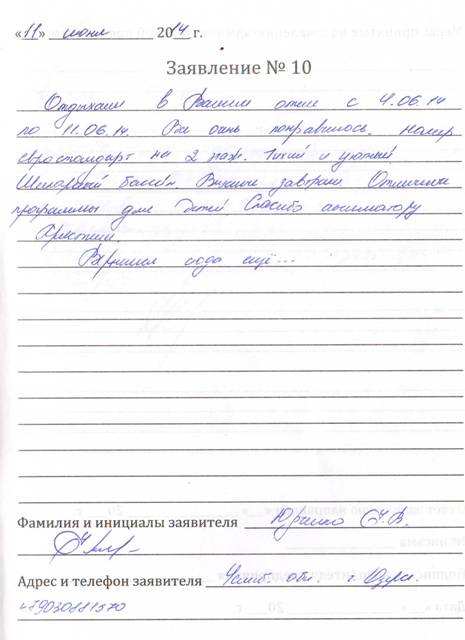 «11» июня 2014 г.
Заявление № 10
Отдыхали в Вашем отеле с 4.06.14
по 11.06.14. Все очень понравилось. Номер
евростандарт на 2 этаж. Тихий и уютный
Шикарный бассейн. Вкусные завтраки Отличные
программы для детей Спасибо аниматору
Кристине.
Вернемся сюда ещё...
Фамилия и инициалы заявителя
Адрес и телефон заявителя Челяб. обл. г. Озерск
+79030881570